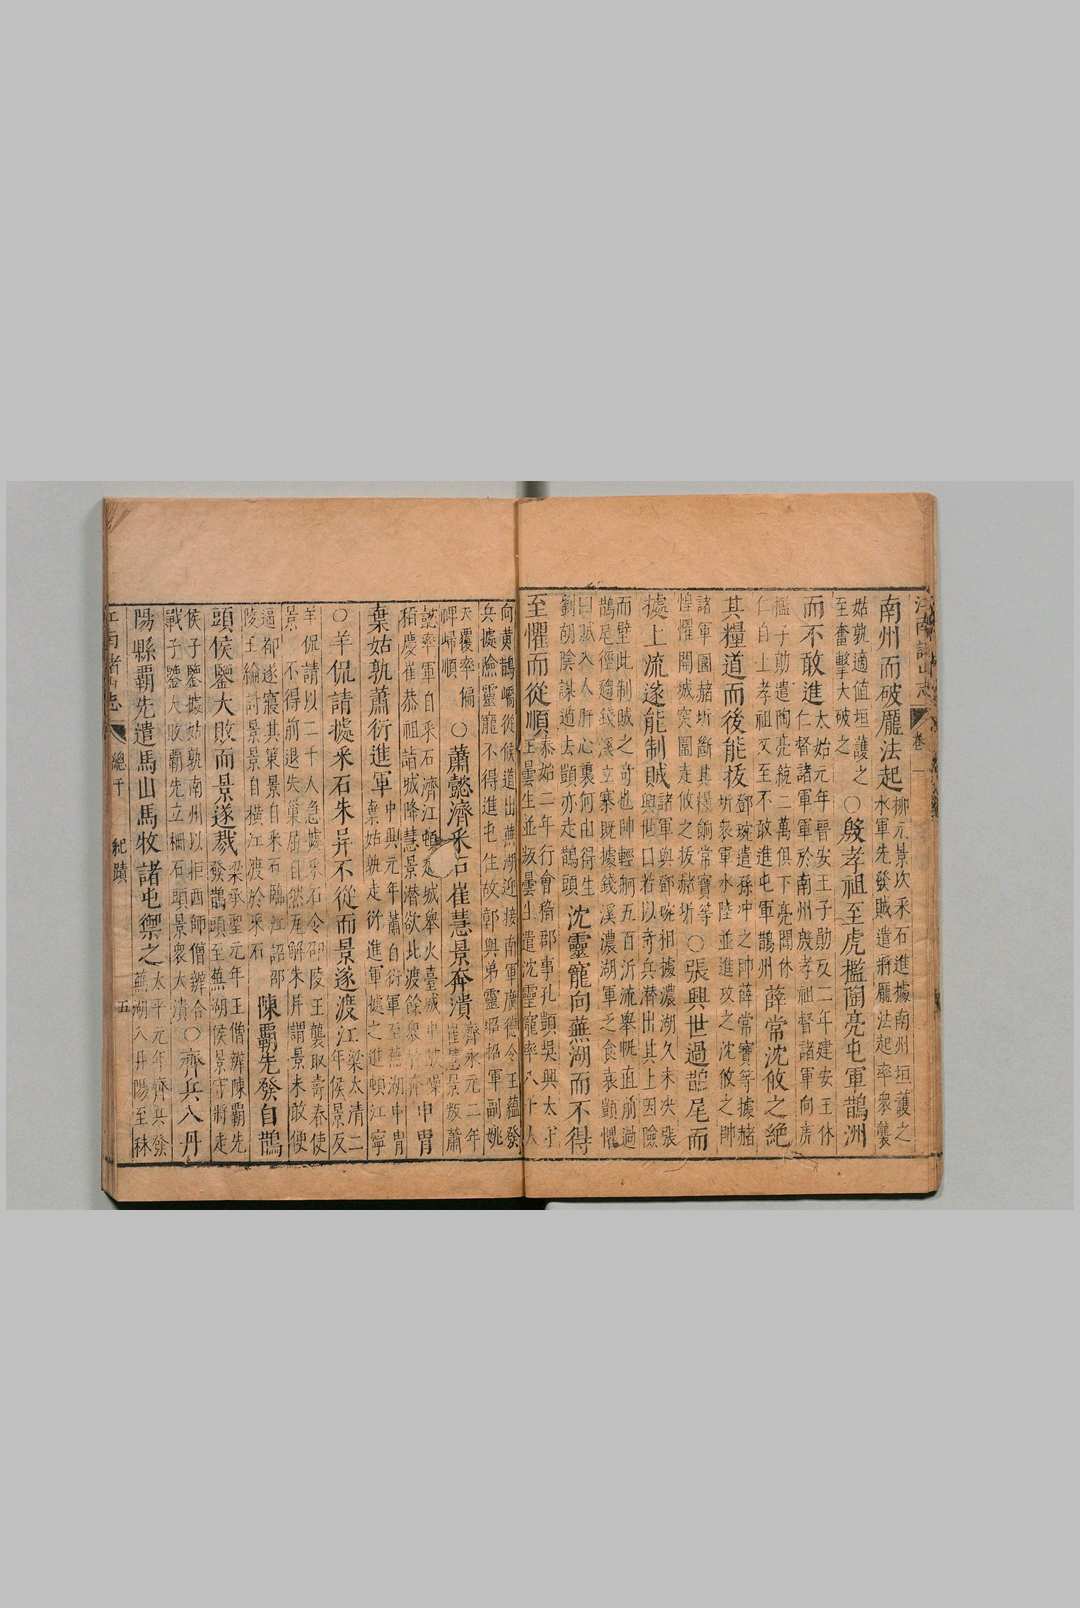 江南諸山志　卷一
南州而破龐法起柳元景次采石進據南州垣護之水軍先發賊遣將龐法起率衆襲
姑孰適值垣護之至奮擊大破之〇殷孝祖至虎檻陶亮屯軍鵲洲
而不敢進太始元年晉安王子勛反二年建安王休仁督諸軍軍於南州殷孝祖督諸軍向虎
檻子勛遣陶亮統二萬俱下亮聞休仁自上孝祖又至不敢進屯軍鵲州薛常沈攸之絶
其糧道而後能拔鄧琬遣孫冲之帥薛常寶等據赭圻袞軍水陸並進攻之沈攸之帥
諸軍圍赭圻斷其糧餉常寶等惶懼開城突圍走攸之拔赭圻〇張興世過鵲尾而
據上流遂能制賊諸軍與鄧琬相據濃湖久未决張興世曰若以奇兵潜出其上因險
而壁此制賊之奇也帥輕舸五百沂流舉帆直前過鵲尾徑趨錢溪立寨既據錢溪濃湖軍乏食袁顗懼
曰賊入人肝心裏何由得生劉胡陰謀遁去顗亦走鵲頭沈靈寵向蕪湖而不得
至懼而從順泰始二年行會稽郡事孔顗吳興太守王曇生並叛曇生遣沈靈寵率八千人
向黄鵲嶠從候道出蕪湖迎接南軍廣德令王蘊發兵據險靈寵不得進屯住故郭與弟靈昭招軍副姚
天覆率偏裨歸順〇蕭懿濟采石崔慧景奔潰齊永元二年崔慧景叛蕭
懿率軍自采石濟江頓越城舉火臺城中鼓譟稻慶崔恭祖詣城降慧景潜欲北渡餘衆皆潰申胄
棄姑孰蕭衍進軍中興元年蕭自衍軍至蕪湖申胄棄姑孰走衍進軍據之進頓江寧
〇羊侃請據采石朱异不從而景遂渡江梁太清二年侯景反
羊侃請以二千人急據采石令邵陵王襲取壽春使景不得前退失巢居自然瓦解朱异謂景未敢便
逼都遂寢其策景自采石臨江詔邵陵王綸討景景自横江渡於采石陳霸先發自鵲
頭侯鑒大敗而景遂戮梁承聖元年王僧辨陳霸先發鵲頭至蕪湖侯景守將走
侯子鑒據姑孰南州以拒西師僧辨合戰子鑒大敗霸先立柵石頭景衆大潰〇齊兵入丹
陽縣霸先遣馬山馬牧諸屯禦之太平元年齊兵發蕪湖入丹陽至秣
江南諸山志　總于　紀蹟　五